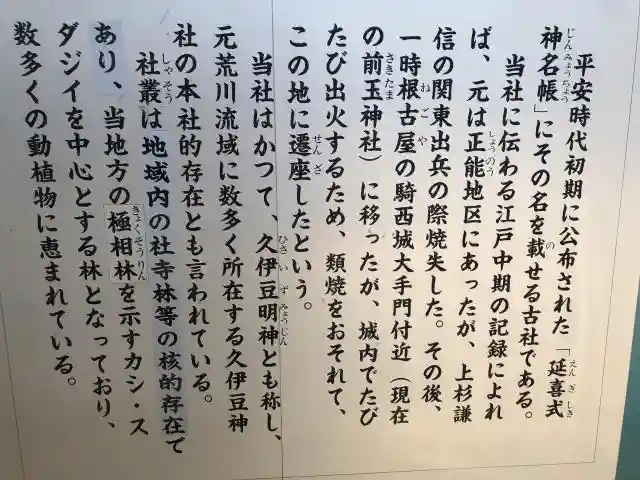 平安時代初期に公布された「延喜式
神名帳」にその名を載せる古社である。
当社に伝わる江戸中期の記録によれ
ば、元は正能地区にあったが、上杉謙
信の関東出兵の際焼失した。その後、
一時根古屋の騎西城大手門付近（現在
の前玉神社）に移ったが、城内でたび
たび出火するため、類焼をおそれて、
この地に遷座したという。
当社はかつて、久伊豆明神とも称し、
元荒川流域に数多く所在する久伊豆神
社の本社的存在とも言われている。
社叢は地域内の社寺林等の核的存在で
あり、当地方の「極相林」を示すカシ・ス
ダジイを中心とする林となっており、
数多くの動植物に恵まれている。